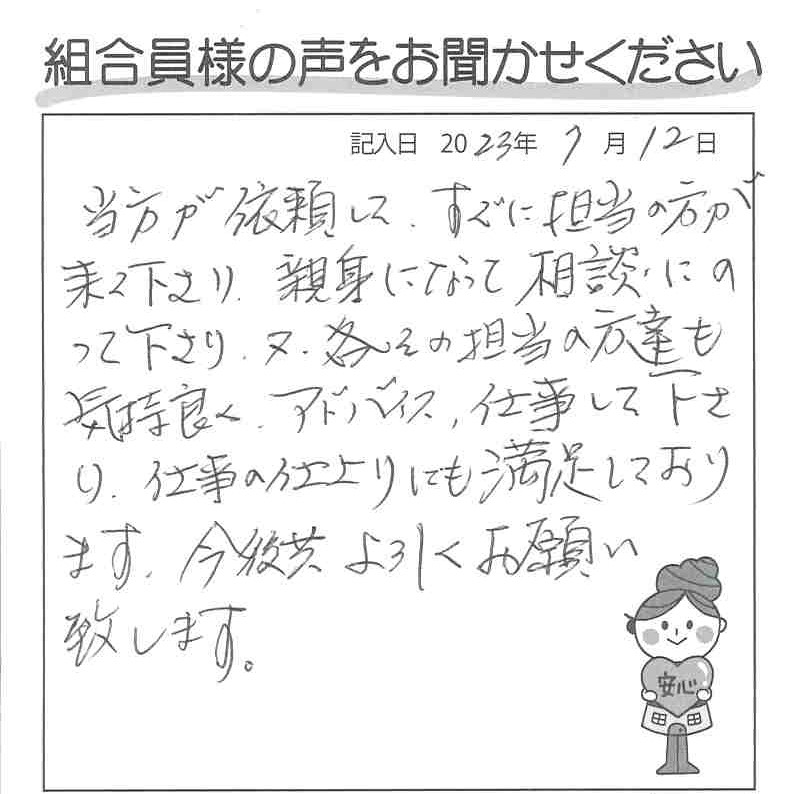 組合員様の声をお聞かせください
記入日 2023年 7月12日
当方が依頼して、すぐに担当の方が
来て下さり、親身になって相談にの
って下さり、又、各々その担当の方達も
気持良く、アドバイス、仕事して下さ
り、仕事の仕上りにも満足しており
ます、今後共よろしくお願い
致します。
安心